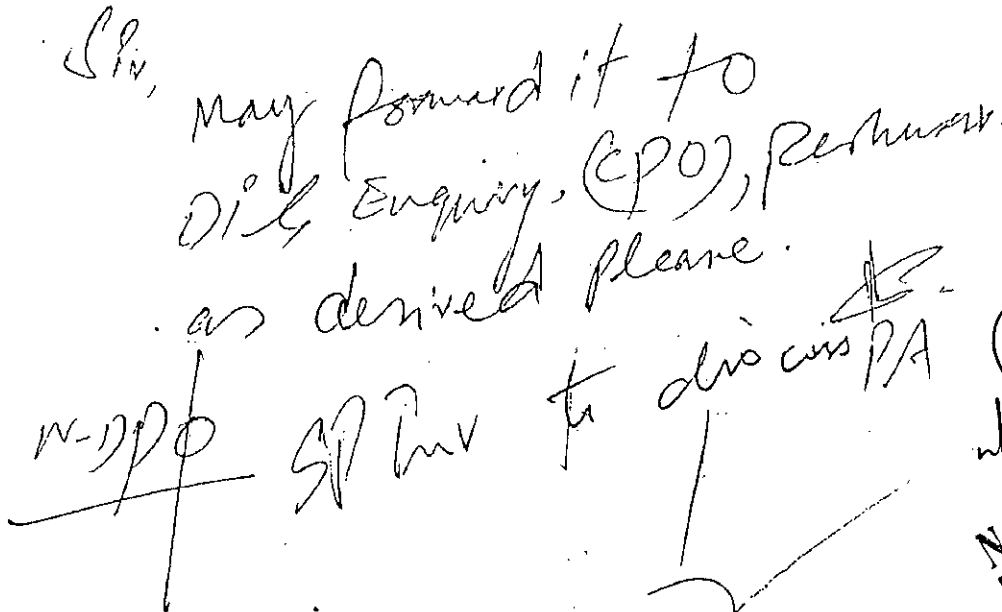 Sir,
May forward it to
DIG, Enquiry, (CPO), Peshawar
as desired please.
PA
W-DPO
SP Inv to discuss